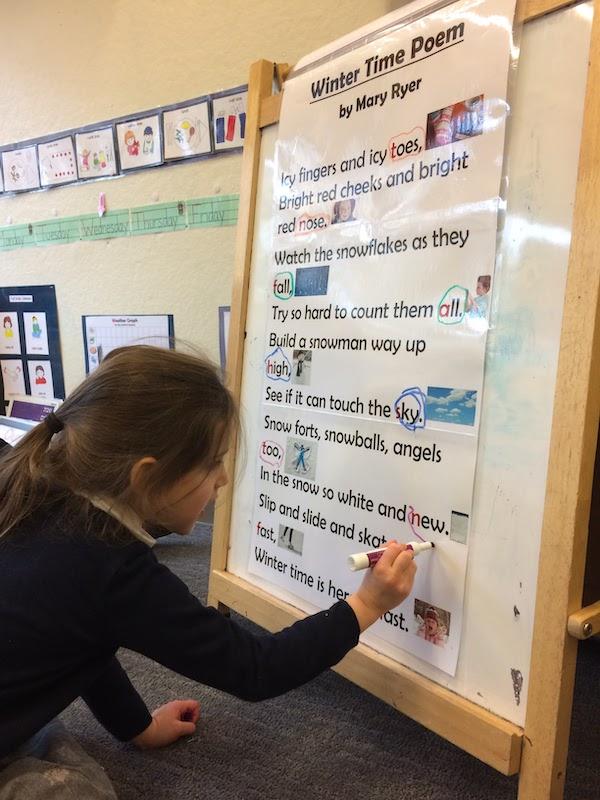 Winter Time Poem
by Mary Ryer
Icy fingers and icy toes,
Bright red cheeks and bright
red nose.
Watch the snowflakes as they
fall,
Try so hard to count them all.
Build a snowman way up
high,
See if it can touch the sky.
Snow forts, snowballs, angels
too,
In the snow so white and new.
Slip and slide and skat
fast,
Winter time is her ast.
Tuesday Wednesday Thursday Friday
Weather Graph